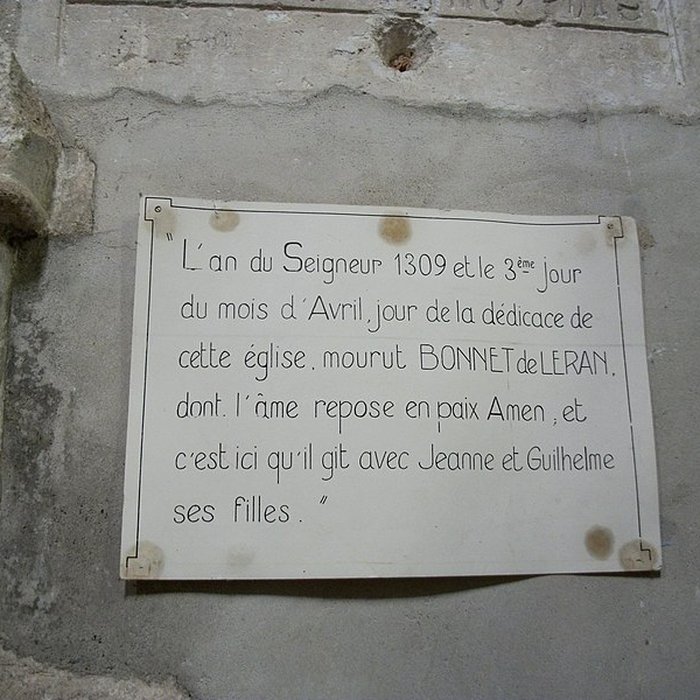 "L'an du Seigneur 1309 et le 3ème jour
du mois d'Avril, jour de la dédicace de
cette église, mourut BONNET de LERAN,
dont l'âme repose en paix Amen ; et
c'est ici qu'il git avec Jeanne et Guilhelme
ses filles."